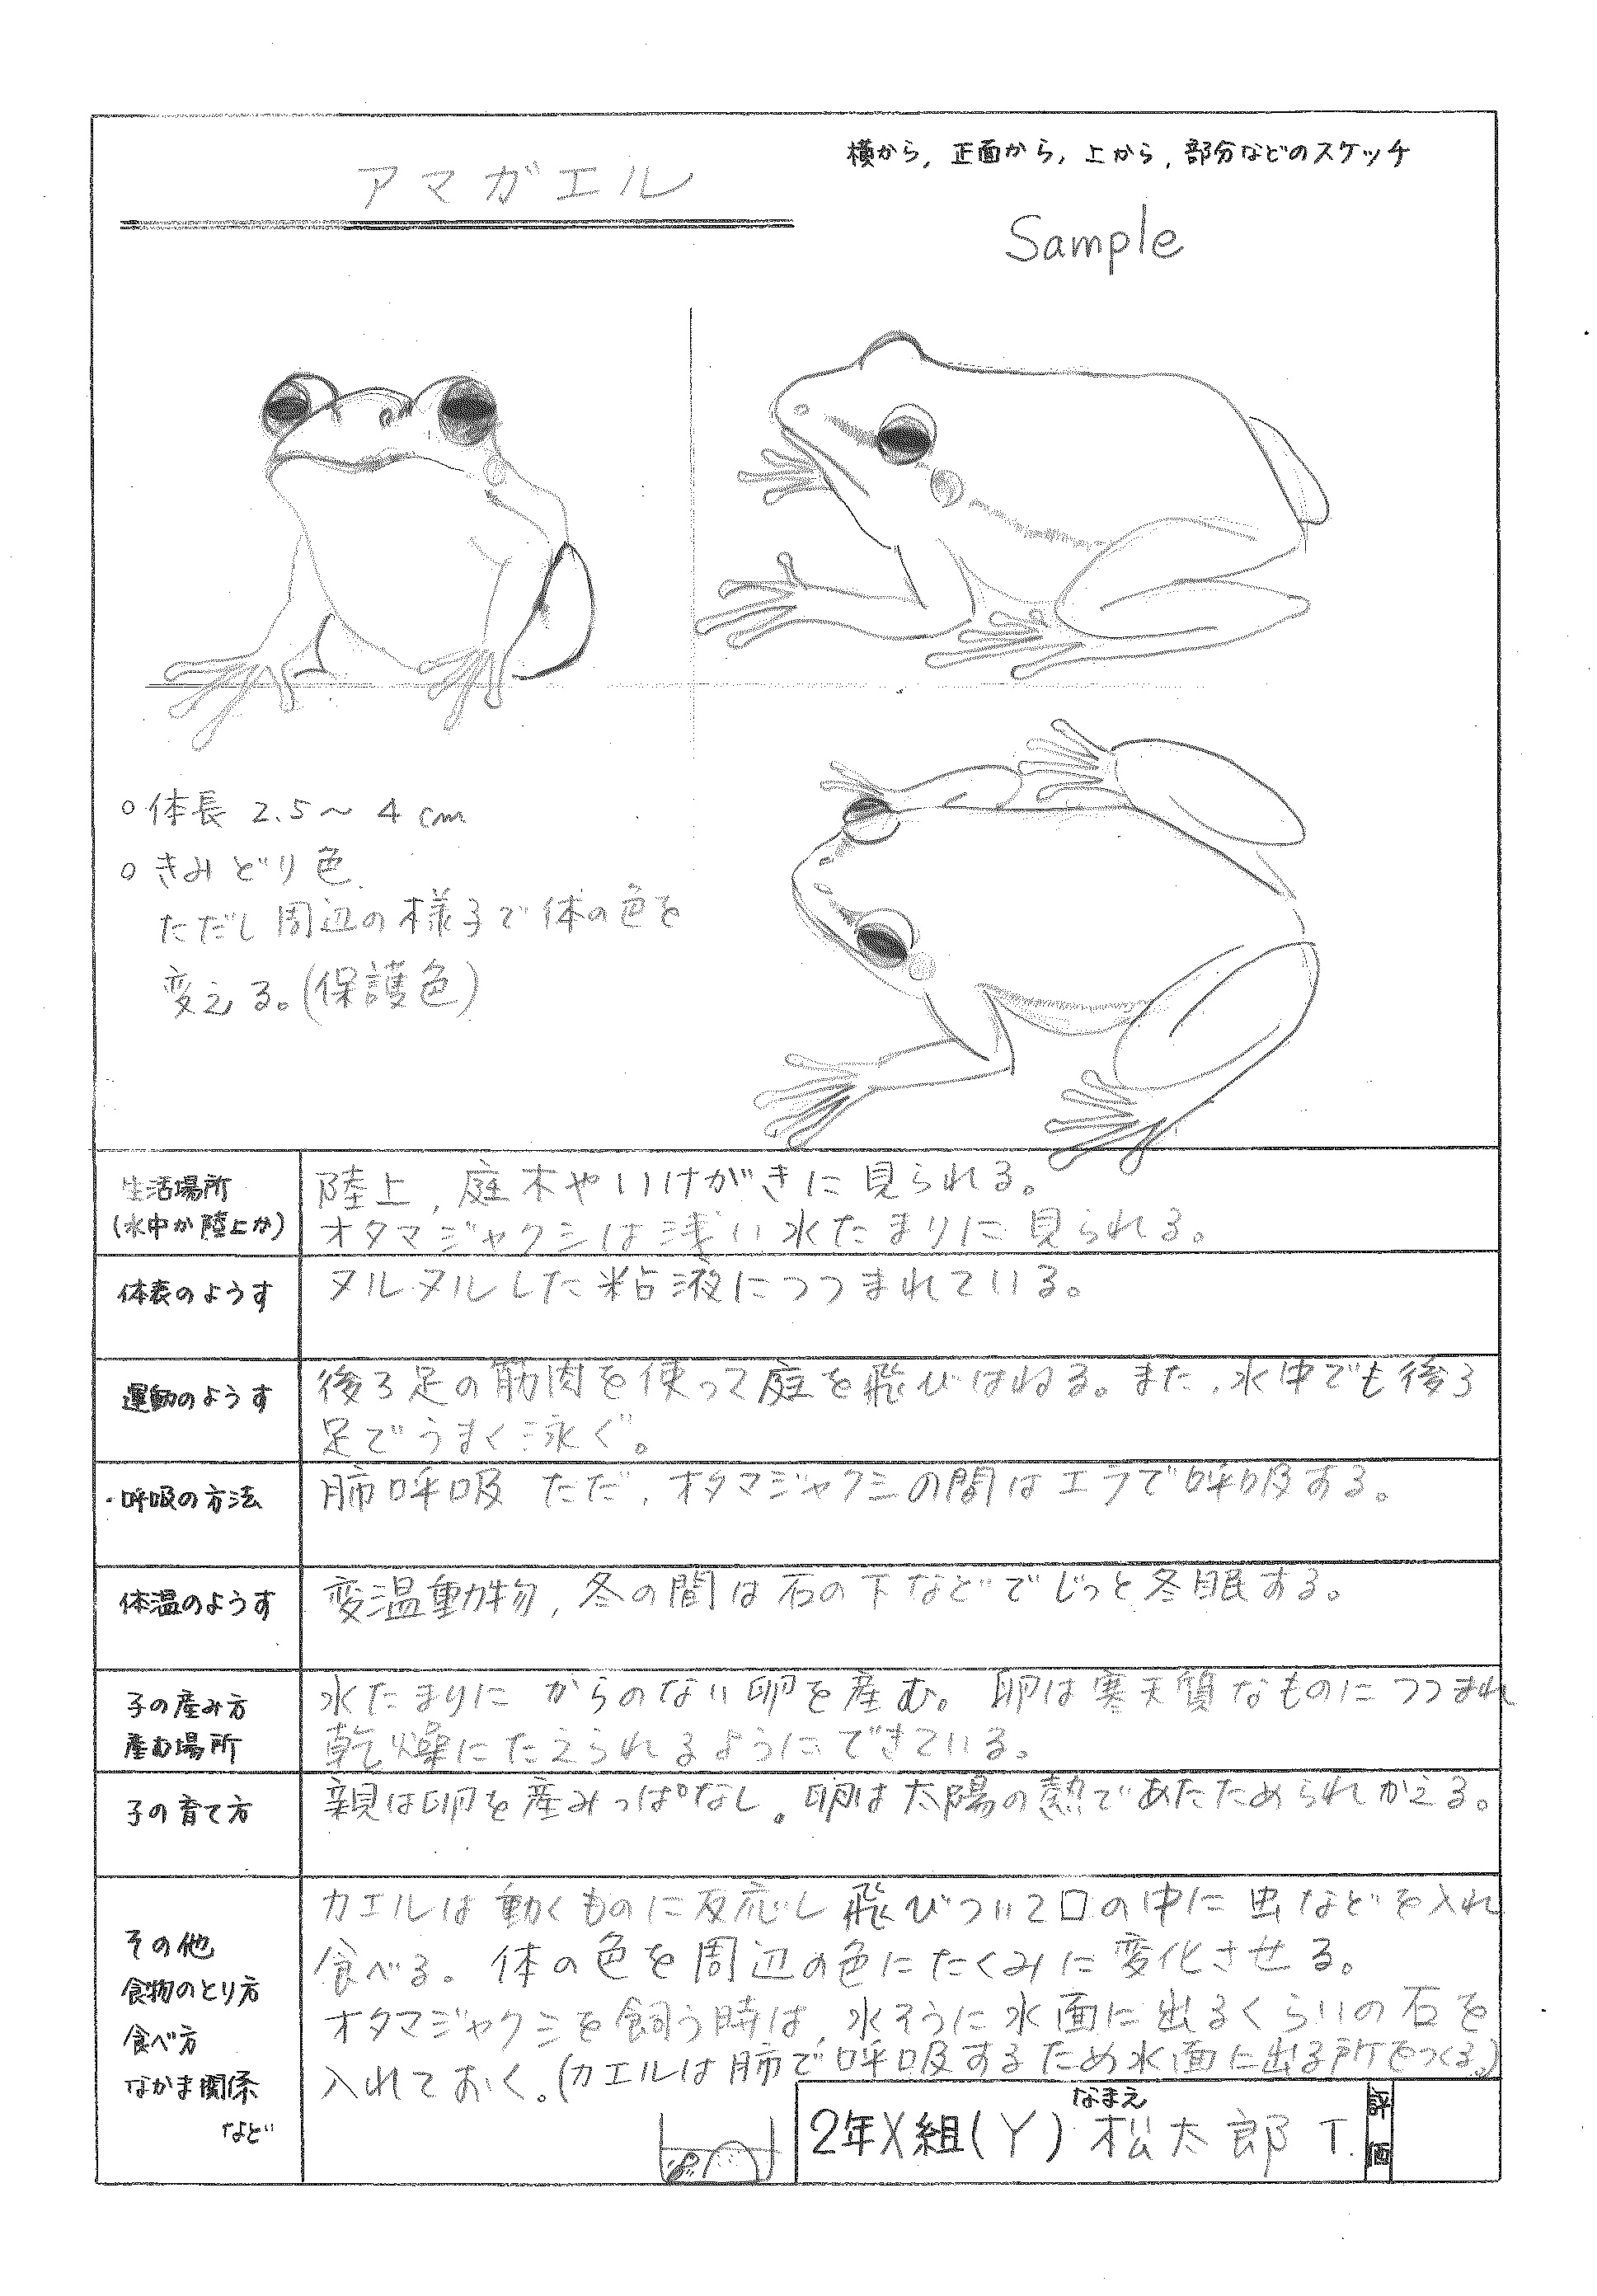 アマガエル
横から、正面から、上から、部分などのスケッチ
Sample
○体長 2.5～4cm
○きみどり色.
ただし周辺の様子で体の色を
変える。(保護色)
生活場所
(水中か陸上か)
陸上、庭木やいけがきに見られる。
オタマジャクシは浅い水たまりに見られる。
体表のようす
ヌルヌルした粘液につつまれている。
運動のようす
後ろ足の筋肉を使って庭を飛びはねる。また、水中でも後ろ
足でうまく泳ぐ。
呼吸の方法
肺呼吸 ただ、オタマジャクシの間はエラで呼吸する。
体温のようす
変温動物、冬の間は石の下などでじっと冬眠する。
子の産み方
産む場所
水たまりに からのない卵を産む。卵は寒天質なものにつつまれ
乾燥にたえられるようにできている。
子の育て方
親は卵を産みっぱなし。卵は太陽の熱であたためられかえる。
その他
食物のとり方
食べ方
なかま関係
など
カエルは動くものに反応し飛びついて口の中に虫などを入れ
食べる。体の色を周辺の色にたくみに変化させる。
オタマジャクシを飼う時は、水そうに水面に出るくらいの石を
入れておく。(カエルは肺で呼吸するため水面に出る所をつくる。)
なまえ
2年X組(Y) 松太郎 T.
評
価